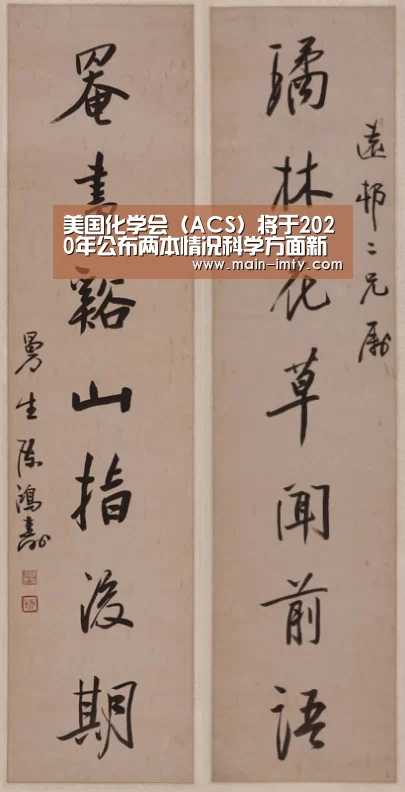 美国化学会（ACS）将于202
0年公布两本情况科学方面新
www.main-imty.com
遠邨二兄屬
璚林花草聞前語
罨畫谿山指後期
曼生陳鴻壽